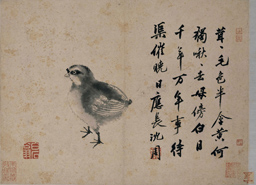 茸〻毛色半含黃何
褐啾〻去母傍白日
千年万年事待
渠催曉日應長沈周